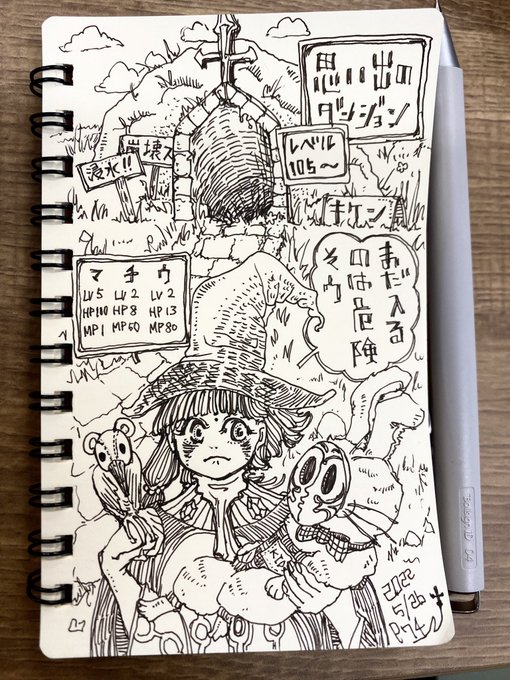 思い出の
ダンジョン
レベル
105～
崩壊ス
浸水!!
キケン
マ チ ウ
LV5 LV2 LV2
HP110 HP8 HP13
MP1 MP60 MP80
まだ入る
のは危険
そウ
2022
5/26